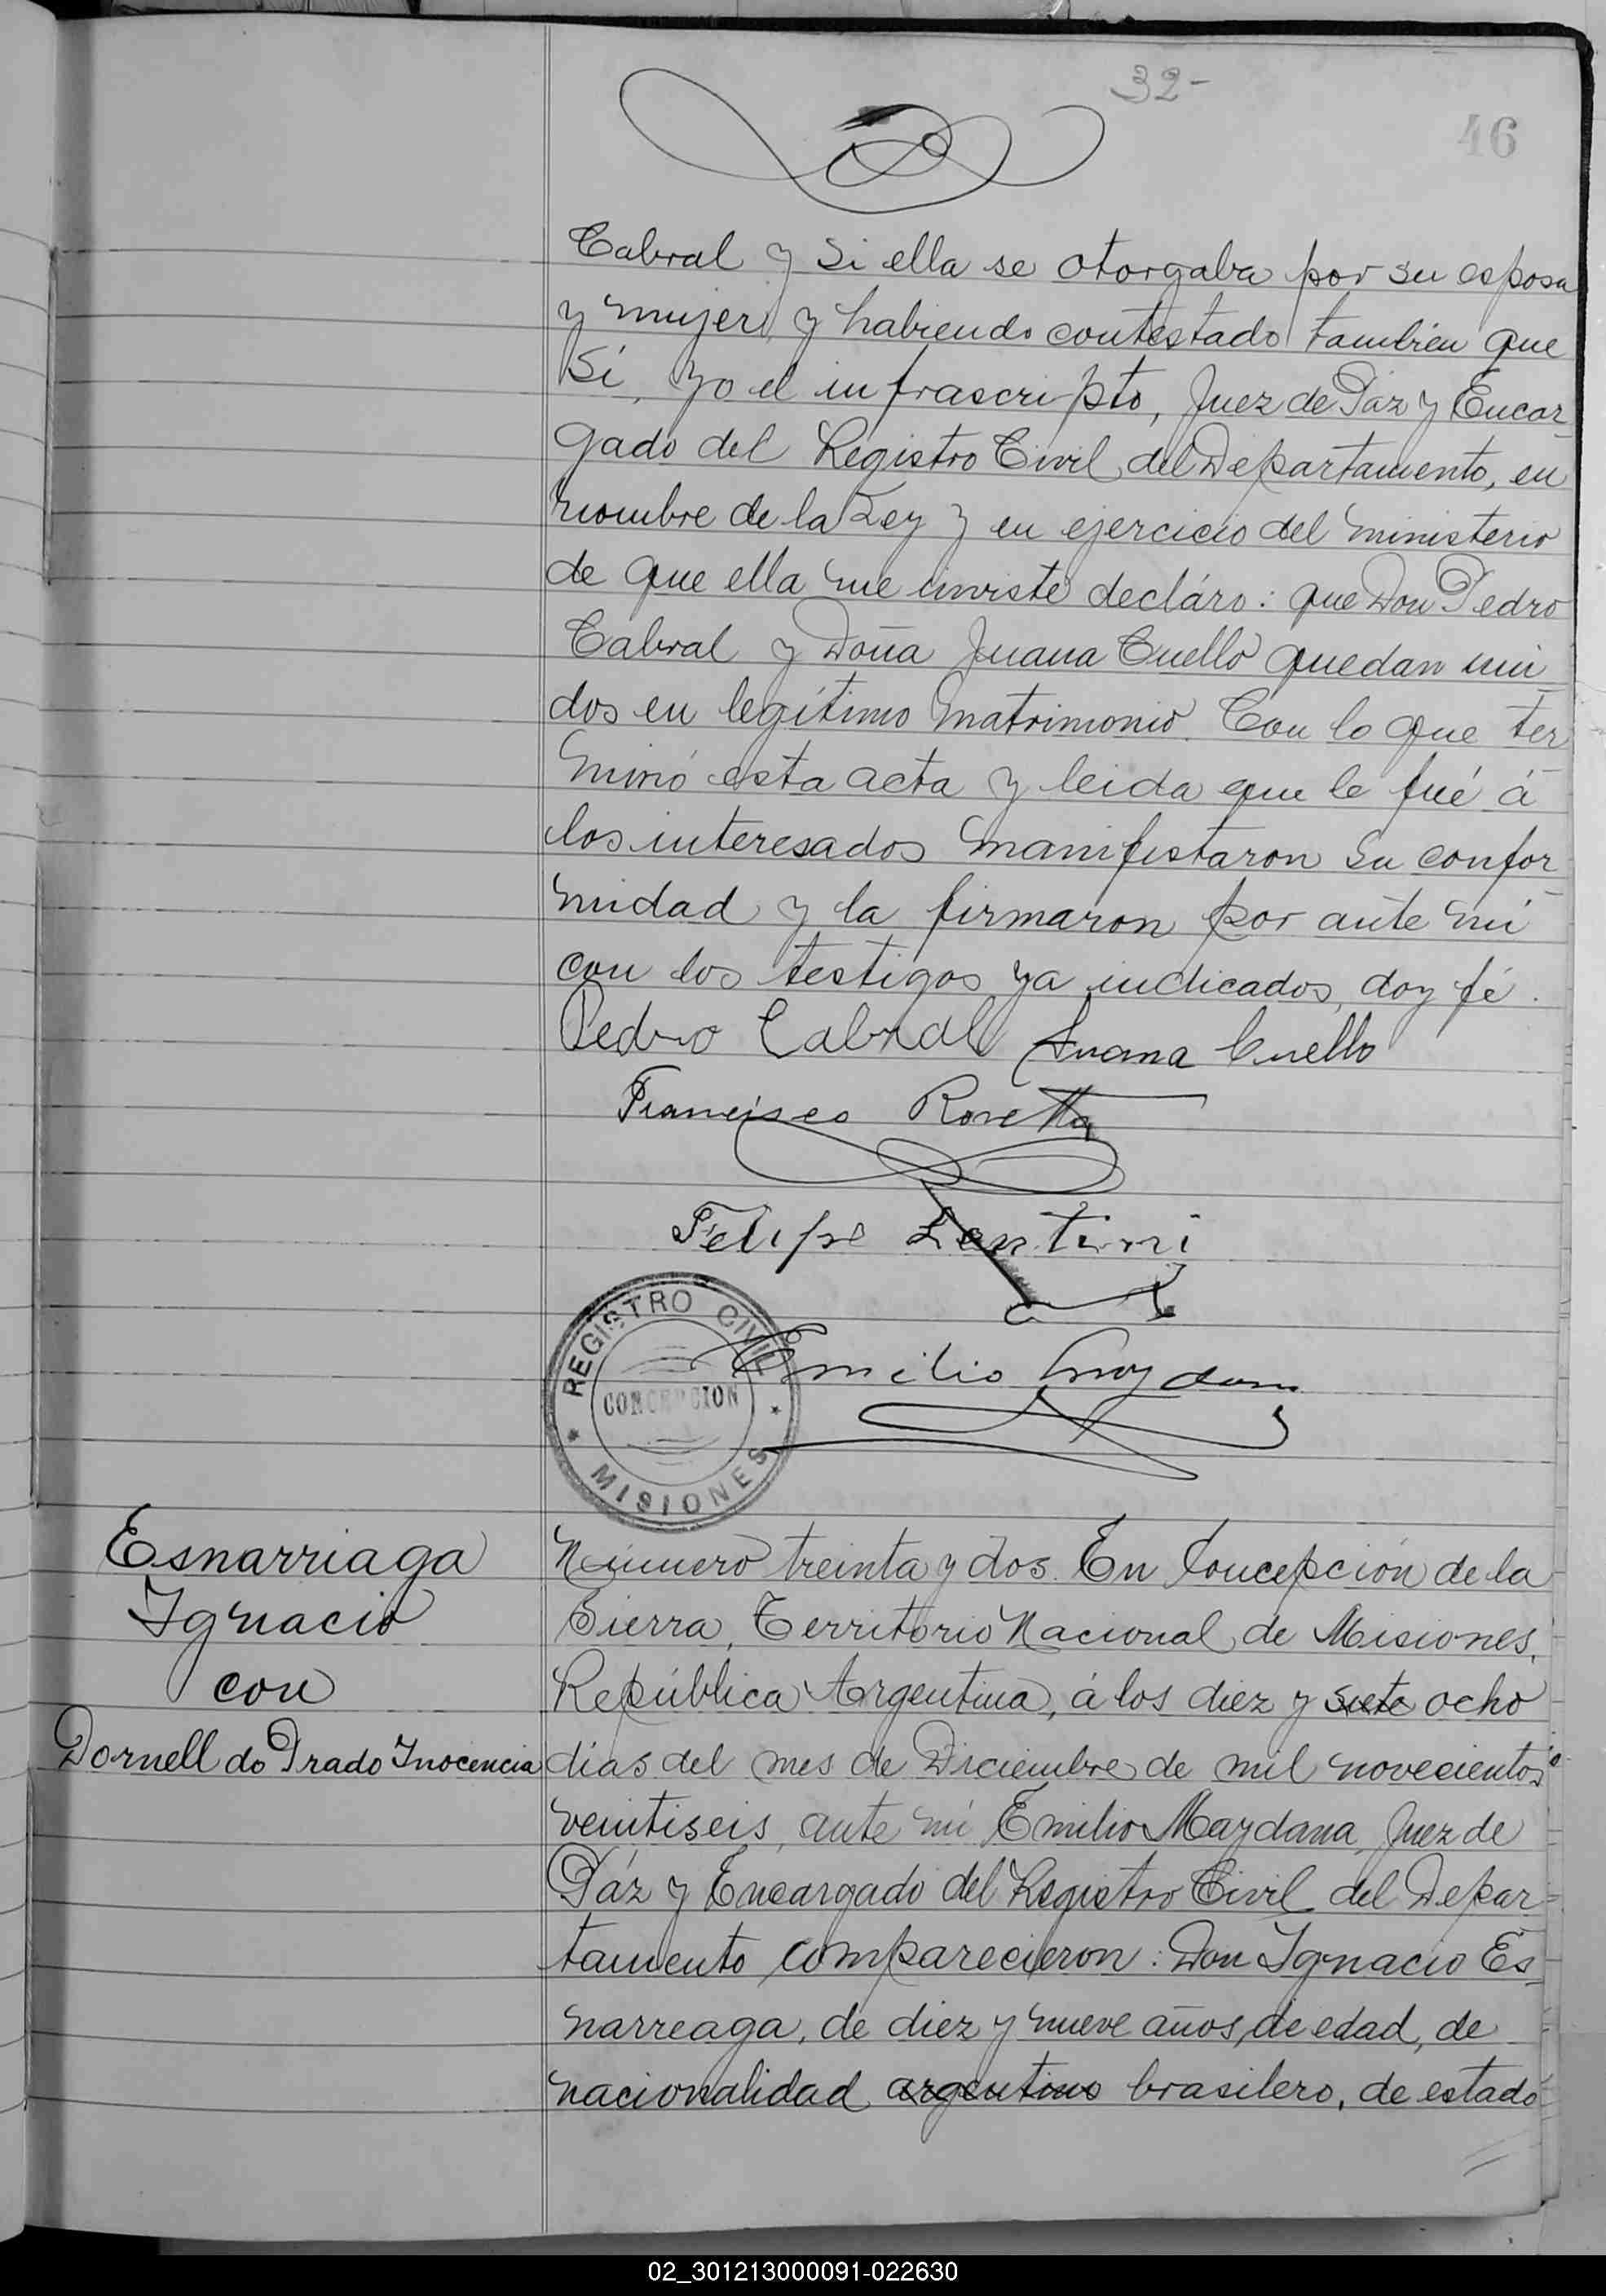 32-
46
Cabral y si ella se otorgaba por su esposa
y mujer, y habiendo contestado también que
Si, yo el infrascripto, Juez de Páz y Encar-
gado del Registro Civil del Departamento, en
nombre de la Ley y en ejercicio del ministerio
de que ella me inviste decláro: que Don Pedro
Cabral y Doña Juana Cuello quedan uni-
dos en legítimo matrimonio. Con lo que ter-
minó esta acta y leida que le fué á
los interesados manifestaron su confor-
midad y la firmaron por ante mi
con los testigos ya indicados, doy fé.
Pedro Cabral Juana Cuello
Francisco Rovetta
Felipe Lentini
REGISTRO CIVIL
CONCEPCION
MISIONES
Emilio Maydana
Esnarriaga
Ignacio
con
Dornell do Prado Inocencia
Número treinta y dos. En Concepción de la
Sierra, Territorio Nacional de Misiones,
República Argentina, á los diez y siete ocho
dias del mes de Diciembre de mil novecientos
veintiseis, ante mi Emilio Maydana, Juez de
Páz y Encargado del Registro Civil del Depar-
tamento comparecieron: Don Ignacio Es-
narreaga, de diez y nueve años, de edad, de
nacionalidad argentino brasilero, de estado
02_301213000091-022630